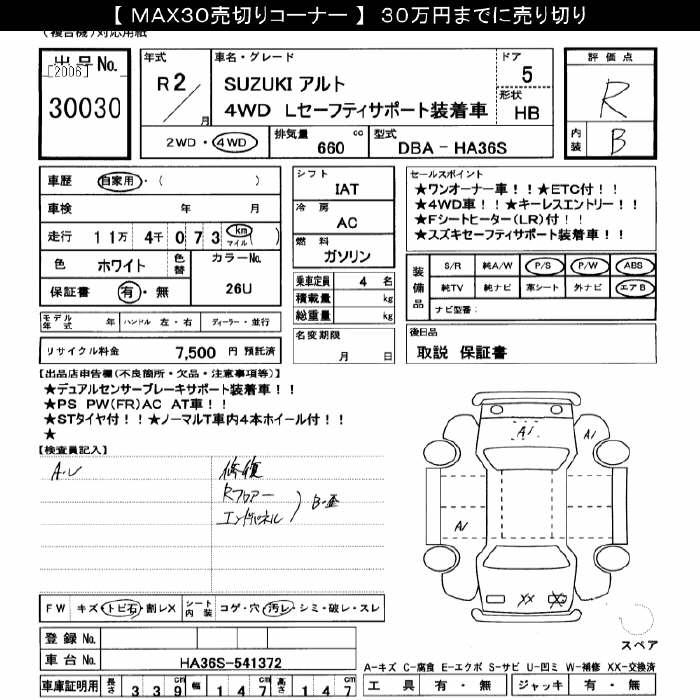 【 MAX30売切りコーナー 】 30万円までに売り切り
(複合機)対応用紙
出品No.
[2006]
30030
年式
R 2/月
車名・グレード
SUZUKI アルト
4WD Lセーフティサポート装着車
ドア
5
形状
HB
評価点
R
内装
B
2WD・4WD
排気量 cc
660
型式
DBA - HA36S
車歴 自家用・( )
車検 年 月
走行 11万 4千 0 7 3 km マイル ( )
色 ホワイト 色替
カラーNo.
26U
保証書 有・無
シフト
IAT
冷房
AC
燃料
ガソリン
乗車定員 4 名
積載量 kg
総重量 kg
セールスポイント
★ワンオーナー車!!★ETC付!!
★4WD車!!★キーレスエントリー!!
★Fシートヒーター(LR)付!!
★スズキセーフティサポート装着車!!
装備品
S/R 純A/W P/S P/W ABS
純TV 純ナビ 革シート 外ナビ エアB
ナビ型番:
モデル年式 年 ハンドル 左・右 ディーラー・並行
名変期限
月 日
後日品
取説 保証書
リサイクル料金 7,500 円 預託済
【出品店申告欄(不良箇所・欠品・注意事項等)】
★デュアルセンサーブレーキサポート装着車!!
★PS PW(FR)AC AT車!!
★STタイヤ付!!★ノーマルT車内4本ホイール付!!
★
【検査員記入】
A.U
修復
Rフロアー
エンドパネル
A1
A1
A1
XX
X
FW キズ・トビ石・割レX
シート内装 コゲ・穴・汚レ・シミ・破レ・スレ
登録 No.
車台 No. HA36S-541372
スペア
A-キズ C-腐食 E-エクボ S-サビ U-凹ミ W-補修 XX-交換済
車庫証明用 長さ 3 3 9 cm 幅 1 4 7 cm 高さ 1 4 7 cm
工具 有・無 ジャッキ 有・無